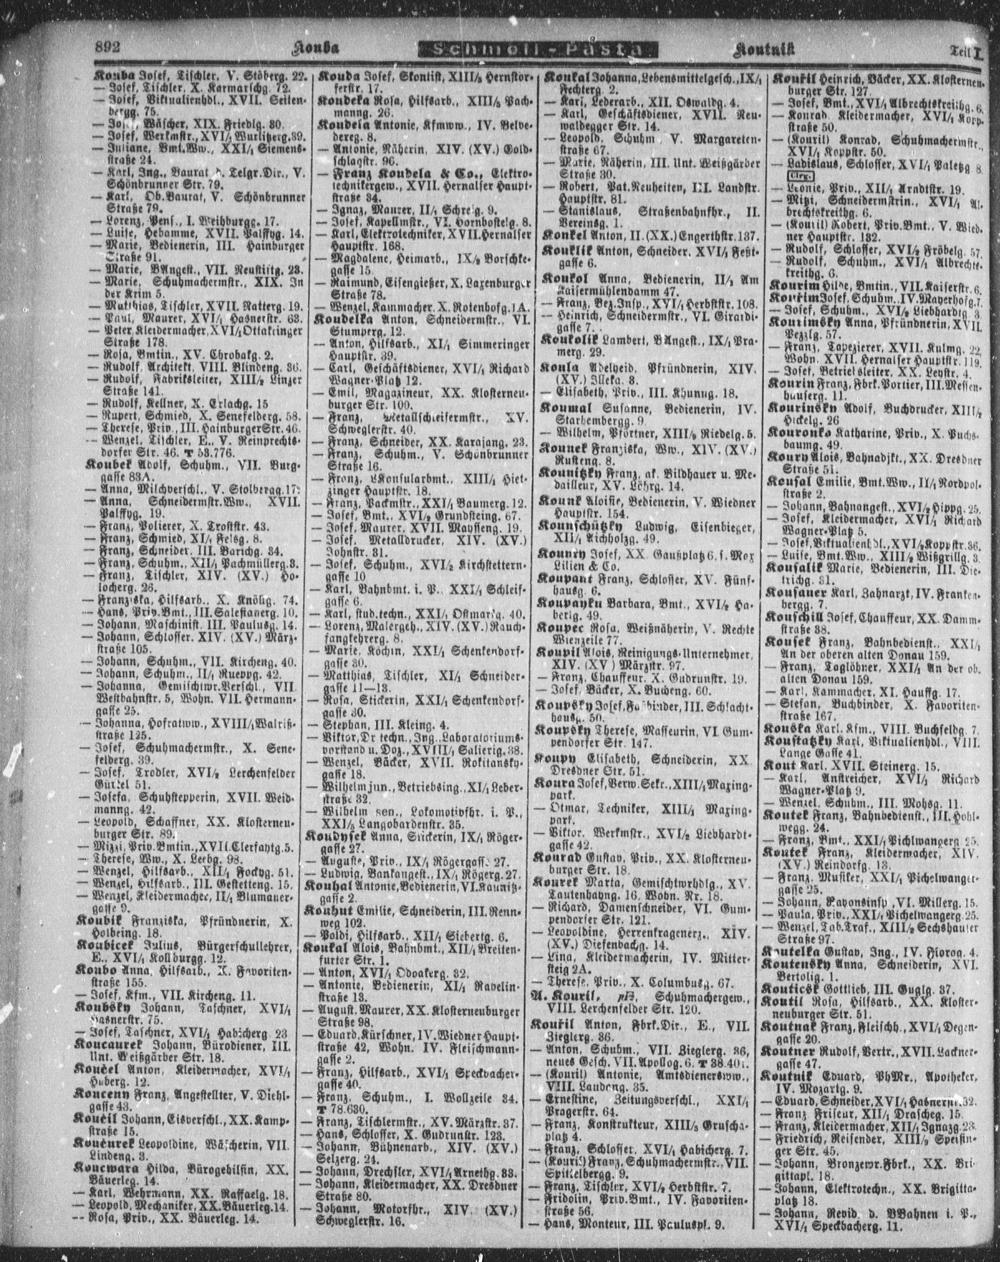 892 Kouba Schmoll-Pasta Koutnik Teil I
Kouba Josef, Tischler, V. Stöberg. 22.
— Josef, Tischler, X. Karmarschg. 72.
— Josef, Viktualienhdl., XVII. Seiten-
bergg. 75.
— Josef, Wäscher, XIX. Friedlg. 30.
— Josef, Werkmstr., XVI/1 Wurlitzerg. 39.
— Juliane, Bmt.Ww., XXI/1 Siemens-
straße 24.
— Karl, Ing., Baurat d. Telgr.Dir., V.
Schönbrunner Str. 79.
— Karl, Ob.Baurat, V. Schönbrunner
Straße 79.
— Lorenz, Pens., I. Weihburgg. 17.
— Luise, Hebamme, XVII. Palffyg. 14.
— Marie, Bedienerin, III. Hainburger
Straße 91.
— Marie, BAngest., VII. Neustiftg. 23.
— Marie, Schuhmachermstr., XIX. In
der Krim 5.
— Matthias, Tischler, XVII. Ratterg. 19.
— Paul, Maurer, XVI/1 Hasnerstr. 63.
— Peter, Kleidermacher, XVI/1 Ottakringer
Straße 178.
— Rosa, Bmtin., XV. Chrobakg. 2.
— Rudolf, Architekt, VIII. Blindeng. 36.
— Rudolf, Fabriksleiter, XIII/2 Linzer
Straße 141.
— Rudolf, Kellner, X. Erlachg. 15
— Rupert, Schmied, X. Senefelderg. 58.
— Therese, Priv., III. Hainburger Str. 46.
— Wenzel, Tischler, E., V. Reinprechts-
dorfer Str. 46. T 53.776.
Koubek Adolf, Schuhm., VII. Burg-
gasse 83A.
— Anna, Milchverschl., V. Stolbergg. 17.
— Anna, Schneidermstr.Ww., XVII.
Palffyg. 19.
— Franz, Polierer, X. Troststr. 43.
— Franz, Schmied, XI/1 Felsg. 8.
— Franz, Schneider, III. Barichg. 34.
— Franz, Schuhm., XII/1 Pachmüllerg. 3.
— Franz, Tischler, XIV. (XV.) Ho-
locherg. 26.
— Franziska, Hilfsarb., X. Knöllg. 74.
— Hans, Priv.Bmt., III. Salesianerg. 10.
— Johann, Maschinist, III. Paulusg. 14.
— Johann, Schlosser, XIV. (XV.) März-
straße 105.
— Johann, Schuhm., VII. Kircheng. 40.
— Johann, Schuhm., II/1 Rueppg. 42.
— Johanna, Gemischtw.Verschl., VII.
Westbahnstr. 5, Wohn. VII. Hermann-
gasse 25.
— Johanna, Hofratww., XVIII/1 Walriß-
straße 125.
— Josef, Schuhmachermstr., X. Sene-
felderg. 39.
— Josef, Trödler, XVI/2 Lerchenfelder
Gürtel 51.
— Josefa, Schuhstepperin, XVII. Weid-
manng. 42.
— Leopold, Schaffner, XX. Klosterneu-
burger Str. 89.
— Mizzi, Priv.Bmtin., XVII. Clerfaytg. 5.
— Therese, Ww., X. Leebg. 98.
— Wenzel, Hilfsarb., XII/1 Fockyg. 51.
— Wenzel, Hilfsarb., III. Gestetteng. 15.
— Wenzel, Kleidermacher, II/1 Blumauer-
gasse 9.
Koubik Franziska, Pfründnerin, X.
Holbeing. 18.
Koubicek Julius, Bürgerschullehrer,
E., XVI/1 Kollburgg. 12.
Koubo Anna, Hilfsarb., X. Favoriten-
straße 155.
— Josef, Kfm., VII. Kircheng. 11.
Koubsky Johann, Taschner, XVI/1
Hasnerstr. 75.
— Josef, Taschner, XVI/1 Habicherg. 23
Koucaurek Johann, Bürodiener, III.
Unt. Weißgärber Str. 18.
Koučel Anton, Kleidermacher, XVI/1
Huberg. 12.
Koucenn Franz, Angestellter, V. Diehl-
gasse 43.
Koučil Johann, Eisverschl., XX. Kamp-
straße 15.
Koučurek Leopoldine, Wäscherin, VII.
Lindeng. 3.
Koucwara Hilda, Bürogehilfin, XX.
Bäuerleg. 14.
— Karl, Wehrmann, XX. Raffaelg. 18.
— Leopold, Mechaniker, XX. Bäuerleg. 14.
— Rosa, Priv., XX. Bäuerleg. 14.
Kouda Josef, Skontist, XIII/3 Hernstor-
ferstr. 17.
Koudeka Rosa, Hilfsarb., XIII/3 Pach-
manng. 26.
Koudela Antonie, Kfmww., IV. Belve-
dereg. 8.
— Antonie, Näherin, XIV. (XV.) Gold-
schlagstr. 96.
— Franz Koudela & Co., Elektro-
technikergew., XVII. Hernalser Haupt-
straße 34.
— Ignaz, Maurer, II/1 Schreig. 9.
— Josef, Kapellmstr., VI. Hornbostelg. 8.
— Karl, Elektrotechniker, XVII. Hernalser
Hauptstr. 168.
— Magdalene, Heimarb., IX/2 Borschke-
gasse 15.
— Raimund, Eisengießer, X. Laxenburger
Straße 78.
— Wenzel, Kammacher, X. Rotenhofg. 1A.
Koudelka Anton, Schneidermstr., VI.
Stumperg. 12.
— Anton, Hilfsarb., XI/1 Simmeringer
Hauptstr. 39.
— Carl, Geschäftsdiener, XVI/1 Richard
Wagner-Platz 12.
— Emil, Magazineur, XX. Klosterneu-
burger Str. 100.
— Franz, Metallschleifermstr., XV.
Schweglerstr. 40.
— Franz, Schneider, XX. Karajang. 23.
— Franz, Schuhm., V. Schönbrunner
Straße 16.
— Franz, LKonsularbmt., XIII/1 Hiet-
zinger Hauptstr. 18.
— Franz, Packmstr., XXI/1 Baumerg. 12.
— Josef, Bmt., XVI/2 Grundsteing. 67.
— Josef, Maurer, XVII. Maysseng. 19.
— Josef, Metalldrucker, XIV. (XV.)
Johnstr. 31.
— Josef, Schuhm., XVI/1 Kirchstettern-
gasse 10
— Karl, Bahnbmt. i. P., XXI/1 Schleif-
gasse 6.
— Karl, stud. techn., XXI/1 Ostmarkg. 40.
— Lorenz, Malergeh., XIV. (XV.) Rauch-
fangkehrerg. 8.
— Marie, Köchin, XXI/1 Schenkendorf-
gasse 30.
— Matthias, Tischler, XI/1 Schneider-
gasse 11—13.
— Rosa, Stickerin, XXI/1 Schenkendorf-
gasse 30.
— Stephan, III. Kleing. 4.
— Viktor, Dr techn., Ing., Laboratoriums-
vorstand u. Doz., XVIII/1 Salierig. 38.
— Wenzel, Bäcker, XVII. Rokitansky-
gasse 18.
— Wilhelm jun., Betriebsing., XI/1 Leber-
straße 32.
— Wilhelm sen., Lokomotivfhr. i. P.,
XXI/5 Langobardenstr. 35.
Koudysek Anna, Stickerin, IX/1 Röger-
gasse 27.
— Auguste, Priv., IX/1 Rögergasse 27.
— Ludwig, Bankangest., IX/1 Rögerg. 27.
Kouhal Antonie, Bedienerin, VI. Kaunitz-
gasse 2.
Kouhut Emilie, Schneiderin, III. Renn-
weg 102.
— Poldi, Hilfsarb., XII/1 Siebertg. 6.
Koukal Alois, Bahnbmt., XII/1 Breiten-
furter Str. 1.
— Anton, XVI/1 Odoakerg. 32.
— Antonie, Bedienerin, XI/1 Ravelin-
straße 13.
— August, Maurer, XX. Klosterneuburger
Straße 98.
— Eduard, Kürschner, IV. Wiedner Haupt-
straße 42, Wohn. IV. Fleischmann-
gasse 2.
— Franz, Hilfsarb., XVI/1 Speckbacher-
gasse 40.
— Franz, Schuhm., I. Wollzeile 34.
T 78.630.
— Franz, Tischlermstr., XV. Märzstr. 37.
— Hans, Schlosser, X. Gudrunstr. 123.
— Johann, Bühnenarb., XIV. (XV.)
Selzerg. 24.
— Johann, Drechsler, XVI/1 Arnethg. 83.
— Johann, Kleidermacher, XX. Dresdner
Straße 80.
— Johann, Motorfhr., XIV. (XV.)
Schweglerstr. 16.
Koukal Johanna, Lebensmittelgesch., IX/1
Fechterg. 2.
— Karl, Lederarb., XII. Oswaldg. 4.
— Karl, Geschäftsdiener, XVII. Neu-
waldegger Str. 14.
— Leopold, Schuhm., V. Margareten-
straße 67.
— Marie, Näherin, III. Unt. Weißgärber
Straße 30.
— Robert, Pat.Neuheiten, III. Landstr.
Hauptstr. 81.
— Stanislaus, Straßenbahnfhr., II.
Vereinsg. 1.
Koukel Anton, II. (XX.) Engerthstr. 137.
Kouklik Anton, Schneider, XVI/1 Feßt-
gasse 6.
Koukol Anna, Bedienerin, II/1 Am
Kaisermühlendamm 47.
— Franz, Bez.Insp., XVI/1 Herbststr. 108.
— Heinrich, Schneidermstr., VI. Girardi-
gasse 7.
Koukolik Lambert, BAngest., IX/1 Pra-
merg. 29.
Koula Adelheid, Pfründnerin, XIV.
(XV.) Illekg. 8.
— Elisabeth, Priv., III. Khunng. 18.
Koumal Susanne, Bedienerin, IV.
Starhembergg. 9.
— Wilhelm, Pförtner, XIII/2 Riedelg. 5.
Kounek Franziska, Ww., XIV. (XV.)
Rusteng. 8.
Kounitzky Franz, ak. Bildhauer u. Me-
dailleur, XV. Löhrg. 14.
Kounk Aloisie, Bedienerin, V. Wiedner
Hauptstr. 154.
Kounschützky Ludwig, Eisenbieger,
XII/1 Aichholzg. 49.
Kouniy Josef, XX. Gaußplatz 6, s. Max
Lilien & Co.
Koupant Franz, Schlosser, XV. Fünf-
hausg. 6.
Koupanku Barbara, Bmt., XVI/2 Ha-
berlg. 49.
Koupec Rosa, Weißnäherin, V. Rechte
Wienzeile 77.
Koupil Alois, Reinigungs-Unternehmer,
XIV. (XV.) Märzstr. 97.
— Franz, Chauffeur, X. Gudrunstr. 19.
— Josef, Bäcker, X. Bucheng. 60.
Koupsky Josef, Faßbinder, III. Schlacht-
hausg. 50.
Koupsky Therese, Masseurin, VI. Gum-
pendorfer Str. 147.
Koupy Elisabeth, Schneiderin, XX.
Dresdner Str. 51.
Koura Josef, Verw.Sekr., XIII/1 Maxing-
park.
— Otmar, Techniker, XIII/1 Maxing-
park.
— Viktor, Werkmstr., XVI/2 Liebhardt-
gasse 42.
Kourad Gustav, Priv., XX. Klosterneu-
burger Str. 18.
Kourek Marta, Gemischtwrhdlg., XV.
Tautenhayng. 16, Wohn. Nr. 18.
— Richard, Damenschneider, VI. Gum-
pendorfer Str. 121.
— Leopoldine, Herrenfragenerz., XIV.
(XV.) Diefenbachg. 14.
— Lina, Kleidermacherin, IV. Mitter-
steig 2A.
— Therese, Priv., X. Columbusg. 67.
A. Kouril, Schuhmachergew.,
VIII. Lerchenfelder Str. 120.
Kouřil Anton, Fbrk.Dir., E., VII.
Zieglerg. 36.
— Anton, Schuhm., VII. Zieglerg. 86,
neues Gesch. VII. Apollog. 6. T 38.401.
— (Kouril) Antonie, Amtsdienersww.,
VIII. Laudong. 35.
— Ernestine, Zeitungsverschl., XXI/1
Pragerstr. 64.
— Franz, Konstrukteur, XIII/2 Gruscha-
platz 4.
— Franz, Schlosser, XVI/1 Habicherg. 7.
— (Kouril) Franz, Schuhmachermstr., VII.
Spittelbergg. 9.
— Franz, Tischler, XVI/2 Herbststr. 7.
— Fridolin, Priv.Bmt., IV. Favoriten-
straße 56.
— Hans, Monteur, III. Pauluspl. 9.
Kouřil Heinrich, Bäcker, XX. Klosterneu-
burger Str. 127.
— Josef, Bmt., XVI/1 Albrechtskreithg. 6.
— Konrad, Kleidermacher, XVI/1 Kopp-
straße 50.
— (Kouril) Konrad, Schuhmachermstr.,
XVI/1 Koppstr. 50.
— Ladislaus, Schlosser, XVI/1 Paletzg. 8.
Clrg.
— Leonie, Priv., XII/1 Arndtstr. 19.
— Mitzi, Schneidermstrin., XVI/1 Al-
brechtskreithg. 6.
— (Kouril) Robert, Priv.Bmt., V. Wied-
ner Hauptstr. 132.
— Rudolf, Schlosser, XVI/2 Fröbelg. 57.
— Rudolf, Schuhm., XVI/1 Albrechts-
kreithg. 6.
Kourim Hilde, Bmtin., VII. Kaiserstr. 6.
Kouřim Josef, Schuhm., IV. Mayerhofg. 7.
— Josef, Schuhm., XVI/2 Liebhardtg. 3.
Kourimsky Anna, Pfründnerin, XVII.
Pezzlg. 57.
— Franz, Tapezierer, XVII. Kulmg. 22,
Wohn. XVII. Hernalser Hauptstr. 119.
— Josef, Betriebsleiter, XX. Leystr. 4.
Kourin Franz, Fbrk.Portier, III. Messen-
hauserg. 11.
Kourinsky Adolf, Buchdrucker, XIII/4
Hickelg. 26
Kouronko Katharine, Priv., X. Puchs-
baumg. 49.
Koury Alois, Bahnadjkt., XX. Dresdner
Straße 51.
Kousal Emilie, Bmt.Ww., II/1 Nordpol-
straße 2.
— Johann, Bahnangest., XVI/2 Hippg. 25.
— Josef, Kleidermacher, XVI/1 Richard
Wagner-Platz 5.
— Josef, Viktualienhdl., XVI/1 Koppstr. 36.
— Luise, Bmt.Ww., XIII/2 Wißgrillg. 3.
Kousalik Marie, Bedienerin, III. Die-
trichg. 31.
Kousauer Karl, Zahnarzt, IV. Franken-
bergg. 7.
Kouschill Josef, Chauffeur, XX. Damm-
straße 38.
Kousek Franz, Bahnbedienst., XXI/1
An der oberen alten Donau 159.
— Franz, Taglöhner, XXI/1 An der ob.
alten Donau 159.
— Karl, Kammacher, XI. Hauffg. 17.
— Stefan, Buchbinder, X. Favoriten-
straße 167.
Kouska Karl, Kfm., VIII. Buchfeldg. 7.
Koustatzky Karl, Viktualienhdl., VIII.
Lange Gasse 41.
Kout Karl, XVII. Steinerg. 15.
— Karl, Anstreicher, XVI/1 Richard
Wagner-Platz 9.
— Wenzel, Schuhm., III. Mohsg. 11.
Koutek Franz, Bahnbedienst., III. Hohl-
wegg. 24.
— Franz, Bmt., XXI/1 Pichlwangerg. 25.
Koutek Franz, Kleidermacher, XIV.
(XV.) Reindorfg. 13.
— Franz, Musiker, XXI/1 Pichelwanger-
gasse 25.
— Johann, Pavonsinsp., VI. Millerg. 15.
— Paula, Priv., XXI/1 Pichelwangerg. 25.
— Wenzel, Tab.Traf., XIII/4 Sechshauser
Straße 97.
Koutelka Gustav, Ing., IV. Floragasse 4.
Koutensky Anna, Schneiderin, XVI.
Bertolig. 1.
Kouticsk Gottlieb, III. Guglg. 37.
Koutil Rosa, Hilfsarb., XX. Kloster-
neuburger Str. 51.
Koutnak Franz, Fleischh., XVI/1 Degen-
gasse 20.
Koutner Rudolf, Vertr., XVII. Lackner-
gasse 47.
Koutnik Eduard, PhMr., Apotheker,
IV. Mozartg. 9.
— Eduard, Schneider, XVI/1 Habnerstr. 32.
— Franz, Friseur, XII/1 Draschег. 15.
— Franz, Kleidermacher, XII/1 Ignazg. 23.
— Friedrich, Reisender, XIII/2 Speisin-
ger Str. 45.
— Johann, Bronzewr.Fbrk., XX. Bri-
gittapl. 18.
— Johann, Elektrotechn., XX. Brigitta-
platz 18.
— Johann, Revid. d. BBahnen i. P.,
XVI/1 Speckbacherg. 11.